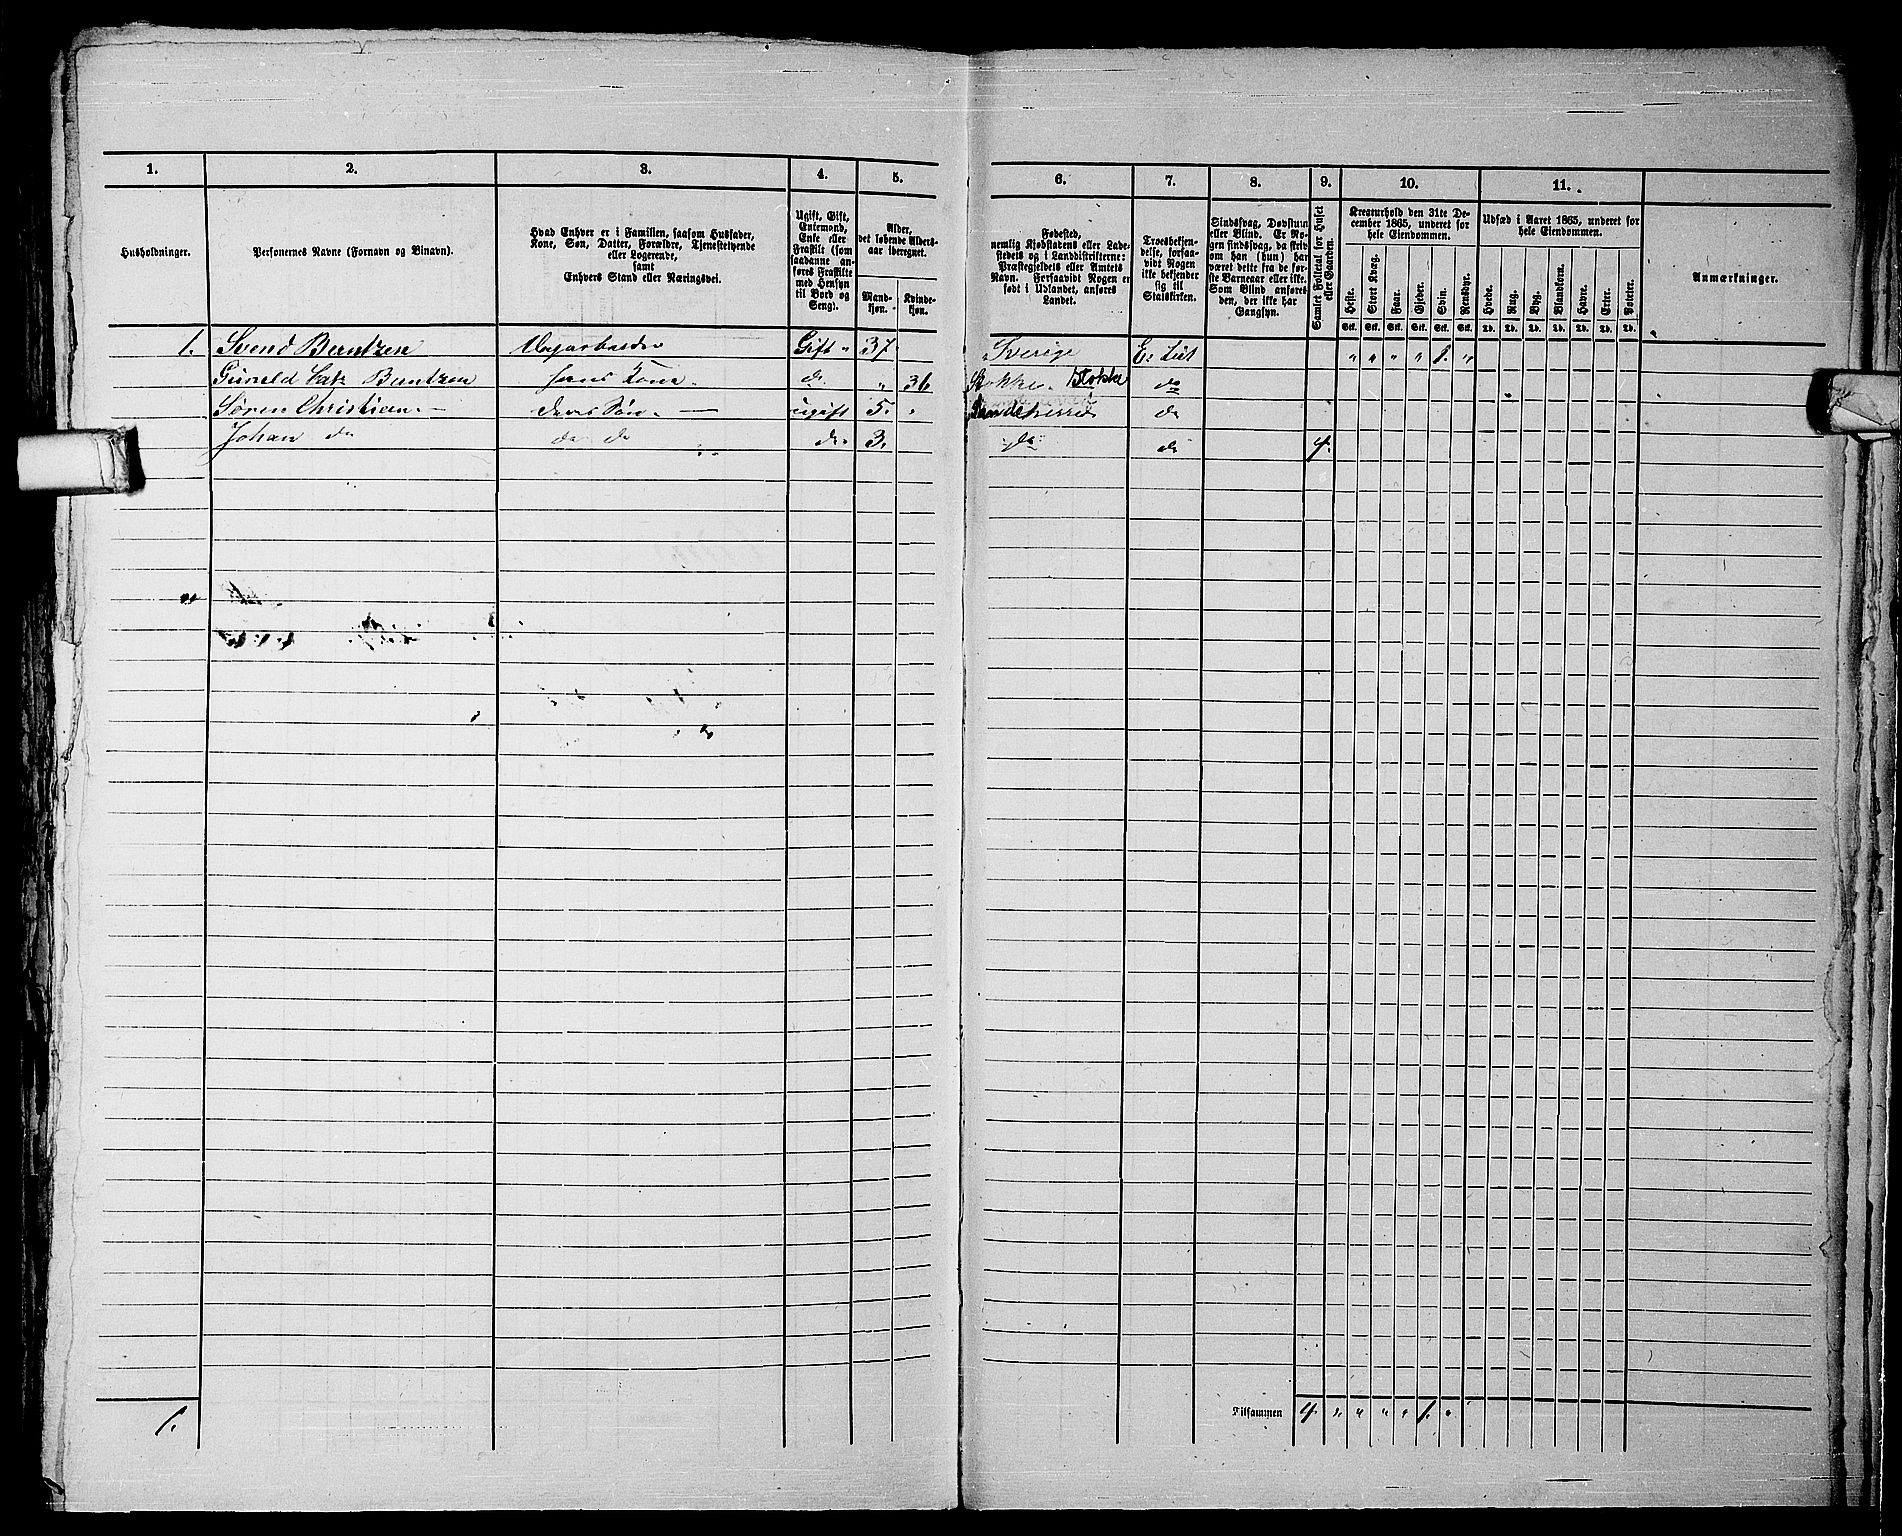 1. 2. 3. 4. 5. 6. 7. 8. 9. 10. 11.
Husholdninger.
Personernes Navne (Fornavn og Binavn).
Hvad Enhver er i Familien, saasom Husfader,
Kone, Søn, Datter, Forældre, Tjenestetyende
eller Logerende,
samt
Enhvers Stand eller Næringsvei.
Ugift, Gift,
Enkemand,
Enke eller
Fraskilt (som
saadanne an-
føres Fraskilte
med Hensyn
til Bord og
Seng).
Alder,
det løbende Alders-
aar iberegnet.
Mand-
kjøn.
Kvinde-
kjøn.
Fødested,
nemlig Kjøbstadens eller Lade-
stedets og i Landdistrikterne:
Præstegjeldets eller Amtets
Navn. Forsaavidt Nogen er
født i Udlandet, anføres
Landet.
Troesbekjen-
delse, forsaa-
vidt Nogen
ikke bekjender
sig til
Statskirken.
Sindssvag, Døvstum
eller Blind. Er No-
gen sindssvag, da skriv
om han (hun) har
været dette fra de før-
ste Barneaar eller ikke.
Som Blind anføres
den, der ikke har
Gangsyn.
Samlet Folketal for Huset
eller Gaarden.
Kreaturhold den 31te De-
cember 1865, underet for
hele Eiendommen.
Heste. Stort Kvæg. Faar. Gjeder. Svin. Rensdyr.
Stk. Stk. Stk. Stk. Stk. Stk.
Udsæd i Aaret 1865, underet for
hele Eiendommen.
Hvede. Rug. Byg. Blandkorn. Havre. Erter. Poteter.
Td. Td. Td. Td. Td. Td. Td.
Anmærkninger.
1. Svend Berntzen Dagarbeider Gift " 37 Sverige Ev: Lut " " " " 1. "
Berntzen hans Kone do " 36 Stokke do
Søren Christian — deres Søn — ugift 5. " Sandeherred do
Johan do do do do 3. do do 4.
1. Tilsammen 4. " " " " 1. "